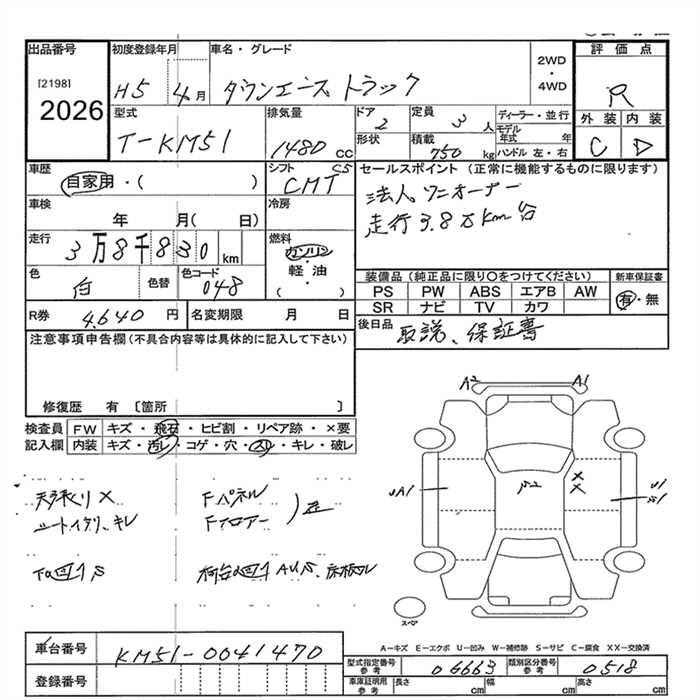 出品番号 初度登録年月 車名・グレード 2WD・4WD 評価点
[2198] H5 4月 タウンエース トラック R
2026
型式 排気量 ドア 定員 ディーラー・並行 外装 内装
T-KM51 1480 cc 2 3人 モデル年式 年 C D
形状 積載 750 kg ハンドル 左・右
車歴 シフト C5 セールスポイント (正常に機能するものに限ります)
自家用・( ) CMT 法人ワンオーナー
車検 冷房 走行3.8万km台
年 月( 日)
走行 燃料
3万8千830 km ガソリン
軽油
( )
色 色替 色コード 装備品 (純正品に限り○をつけてください) 新車保証書
白 048 PS PW ABS エアB AW 有・無
SR ナビ TV カワ
R券 4,640円 名変期限 月 日 後日品 取説、保証書
注意事項申告欄(不具合内容等は具体的に記入して下さい)
修復歴 有 〔箇所 〕
検査員 FW キズ・飛石・ヒビ割・リペア跡・×要
記入欄 内装 キズ・汚レ・コゲ・穴・スレ・キレ・破レ
A2 A1
×
×
UA1
Fパネル
シートイタリ、キレ Fフロアー
スペア
A-キズ E-エクボ U-凹み W-補修跡 S-サビ C-腐食 XX-交換済
車台番号 KM51-0041470
型式指定番号 参考 06663 類別区分番号 参考 0518
登録番号 車庫証明用 参考 長さ cm 幅 cm 高さ cm